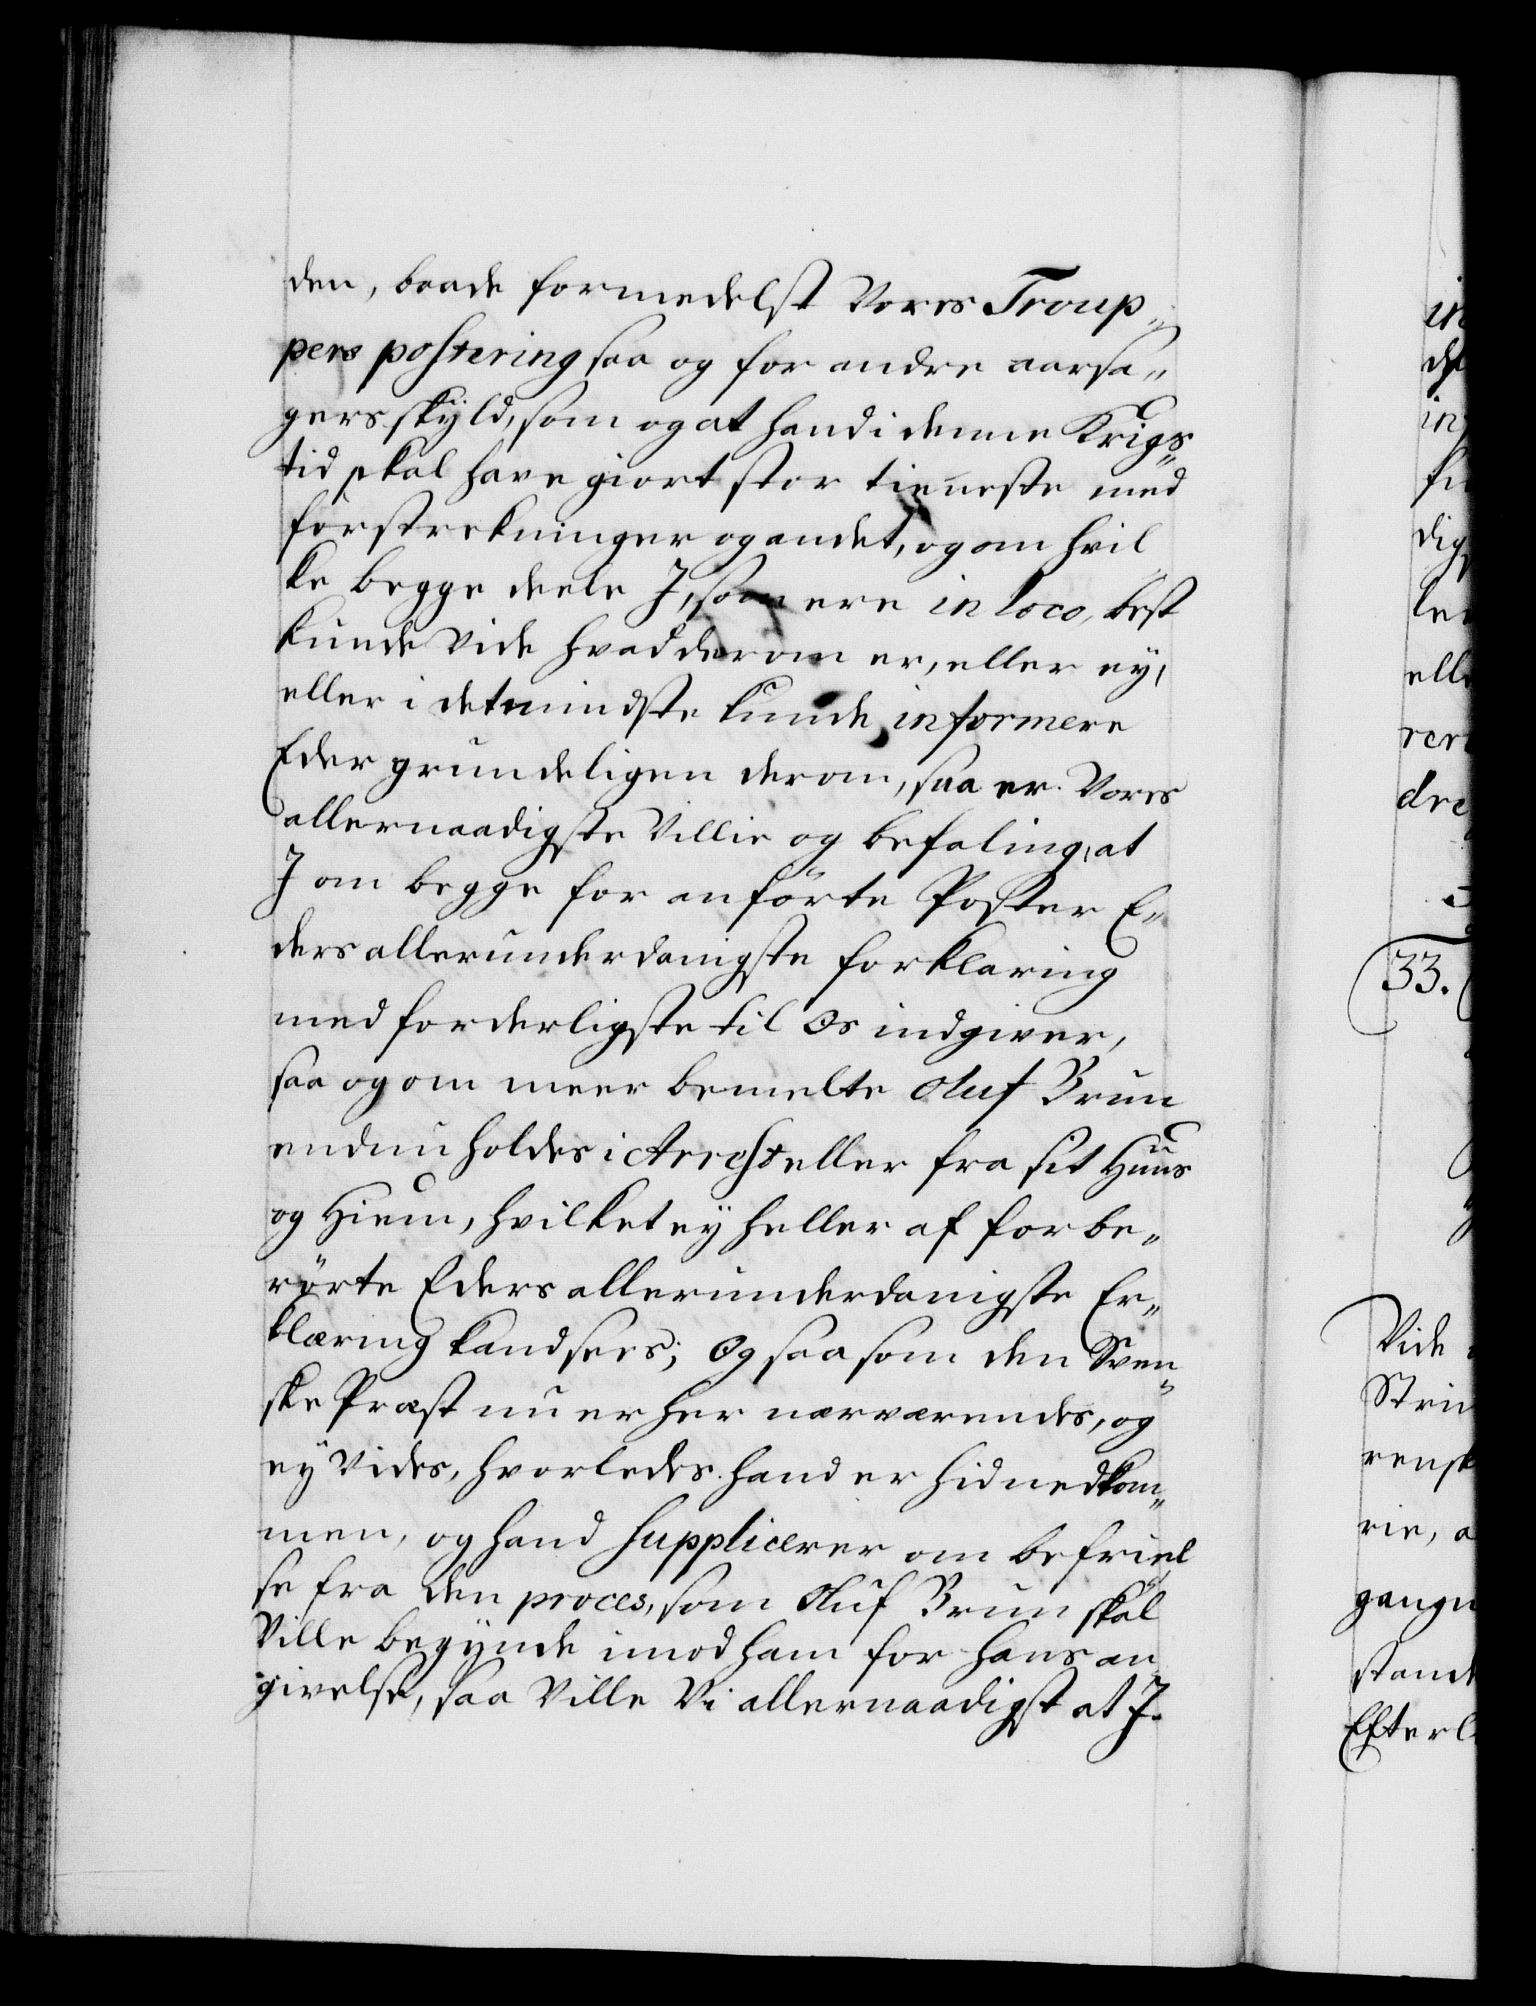 den, baade formedelst Vores Troup„
pers postering saa og for andre aarsa„
gers skÿld, som og at hand i denne Krigs„
tid skal have giort stor tieneste med
forstrekninger og andet, og om hvil
ke begge deele I, som ere in loco, best
kunde vide hvad derom er, eller eÿ,
eller i det mindste kunde informere
Eder grundeligen derom, saa er Vores
allernaadigste Villie og befaling, at
I om begge for anförte Poster E„
ders allerunderdanigste forklaring
med forderligste til Os indgiver,
saa og om meer bemelte Oluf Brun
endnu holdes i Arrest eller fra sit Huus
og Hiem, hvilket eÿ heller af for be„
rörte Eders allerunderdanigste Er„
klæring kand sees; Og saa som den Sven„
ske Præst nu er her nærværendes, og
eÿ vides, hvorledes hand er hid nedkom„
men, og hand supplicerer om befriel
se fra den proces, som Oluf Brun skal
Ville begÿnde imod ham for hans an
givelse, saa Ville Vi allernaadigst at I.
33.
Vide